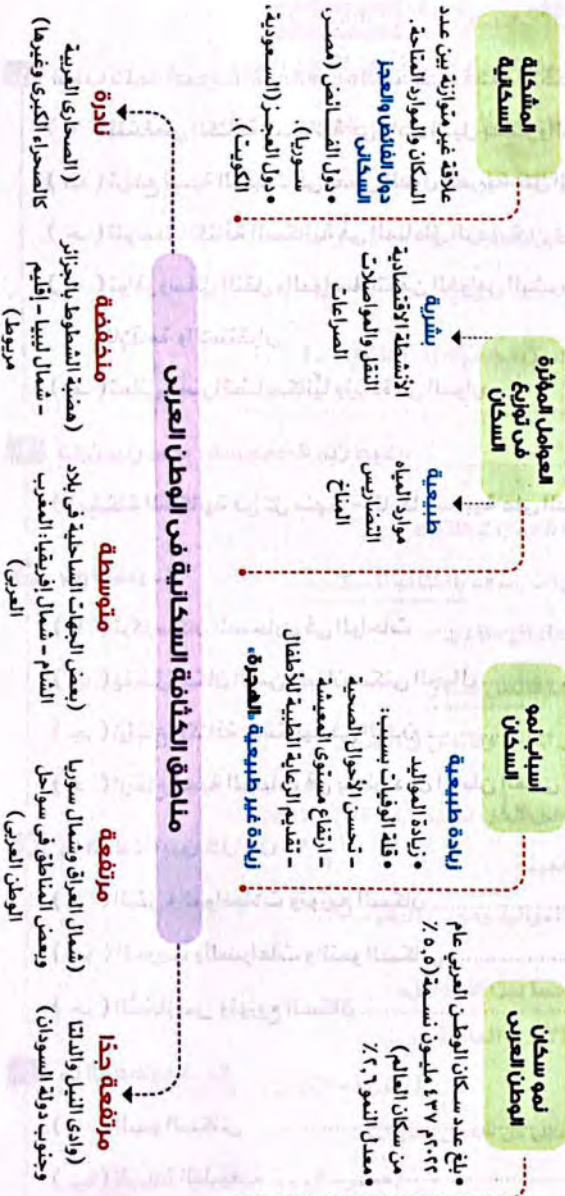 نمو سكان
الوطن العربى
• بلغ عدد سكان الوطن العربي عام
٢٠٢٢م ٤٣٧ مليون نسمة (٥,٥٪
من سكان العالم)
• معدل النمو ٢,٦٪
أسباب نمو
السكان
زيادة طبيعية
• زيادة المواليد
• قلة الوفيات بسبب:
- تحسن الأحوال الصحية
- ارتفاع مستوى المعيشة
- تقديم الرعاية الطبية للأطفال
زيادة غير طبيعية «الهجرة»
العوامل المؤثرة
فى توزيع
السكان
طبيعية
موارد المياه
التضاريس
المناخ
بشرية
الأنشطة الاقتصادية
النقل والمواصلات
الصراعات
المشكلة
السكانية
علاقة غير متوازنة بين عدد
السكان والموارد المتاحة.
دول الفائض والعجز
السكانى
• دول الفـائض (مصـر،
سـوريا)
• دول العجـز (السـعودية،
الكويت)
مناطق الكثافة السكانية فى الوطن العربى
مرتفعة جدًا
(وادى النيل والدلتا
وجنوب دولة السودان)
مرتفعة
(شمال العراق وشمال سوريا
وبعض المناطق فى سواحل
الوطن العربى)
متوسطة
(بعض الجهات الساحلية فى بلاد
الشام - شمال إفريقيا: المغرب
العربى)
منخفضة
(هضبة الشطوط بالجزائر
- شمال ليبيا - إقليم
مريوط)
نادرة
(الصحارى العربية
كالصحراء الكبرى وغيرها)